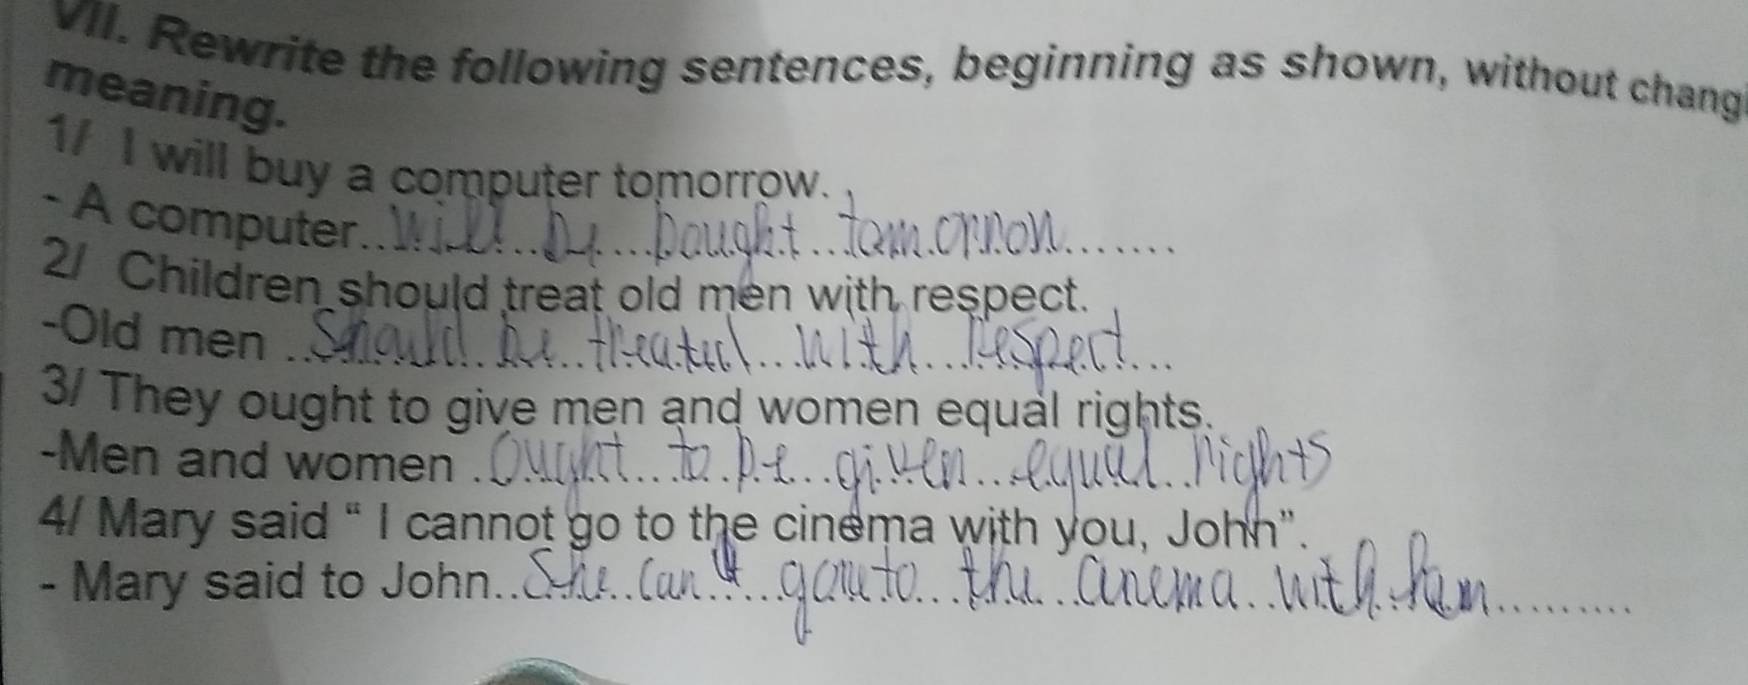 VII. Rewrite the following sentences, beginning as shown, without chang
meaning.
1/ I will buy a computer tomorrow.
- A computer..will...be...bought..tomorrow.......
2/ Children should treat old men with respect.
-Old men ..should..be..treated...with...respect...
3/ They ought to give men and women equal rights.
-Men and women .ought...to..be...given...equal..rights
4/ Mary said “ I cannot go to the cinema with you, John”.
- Mary said to John..She..can't...to...the..cinema..with.........